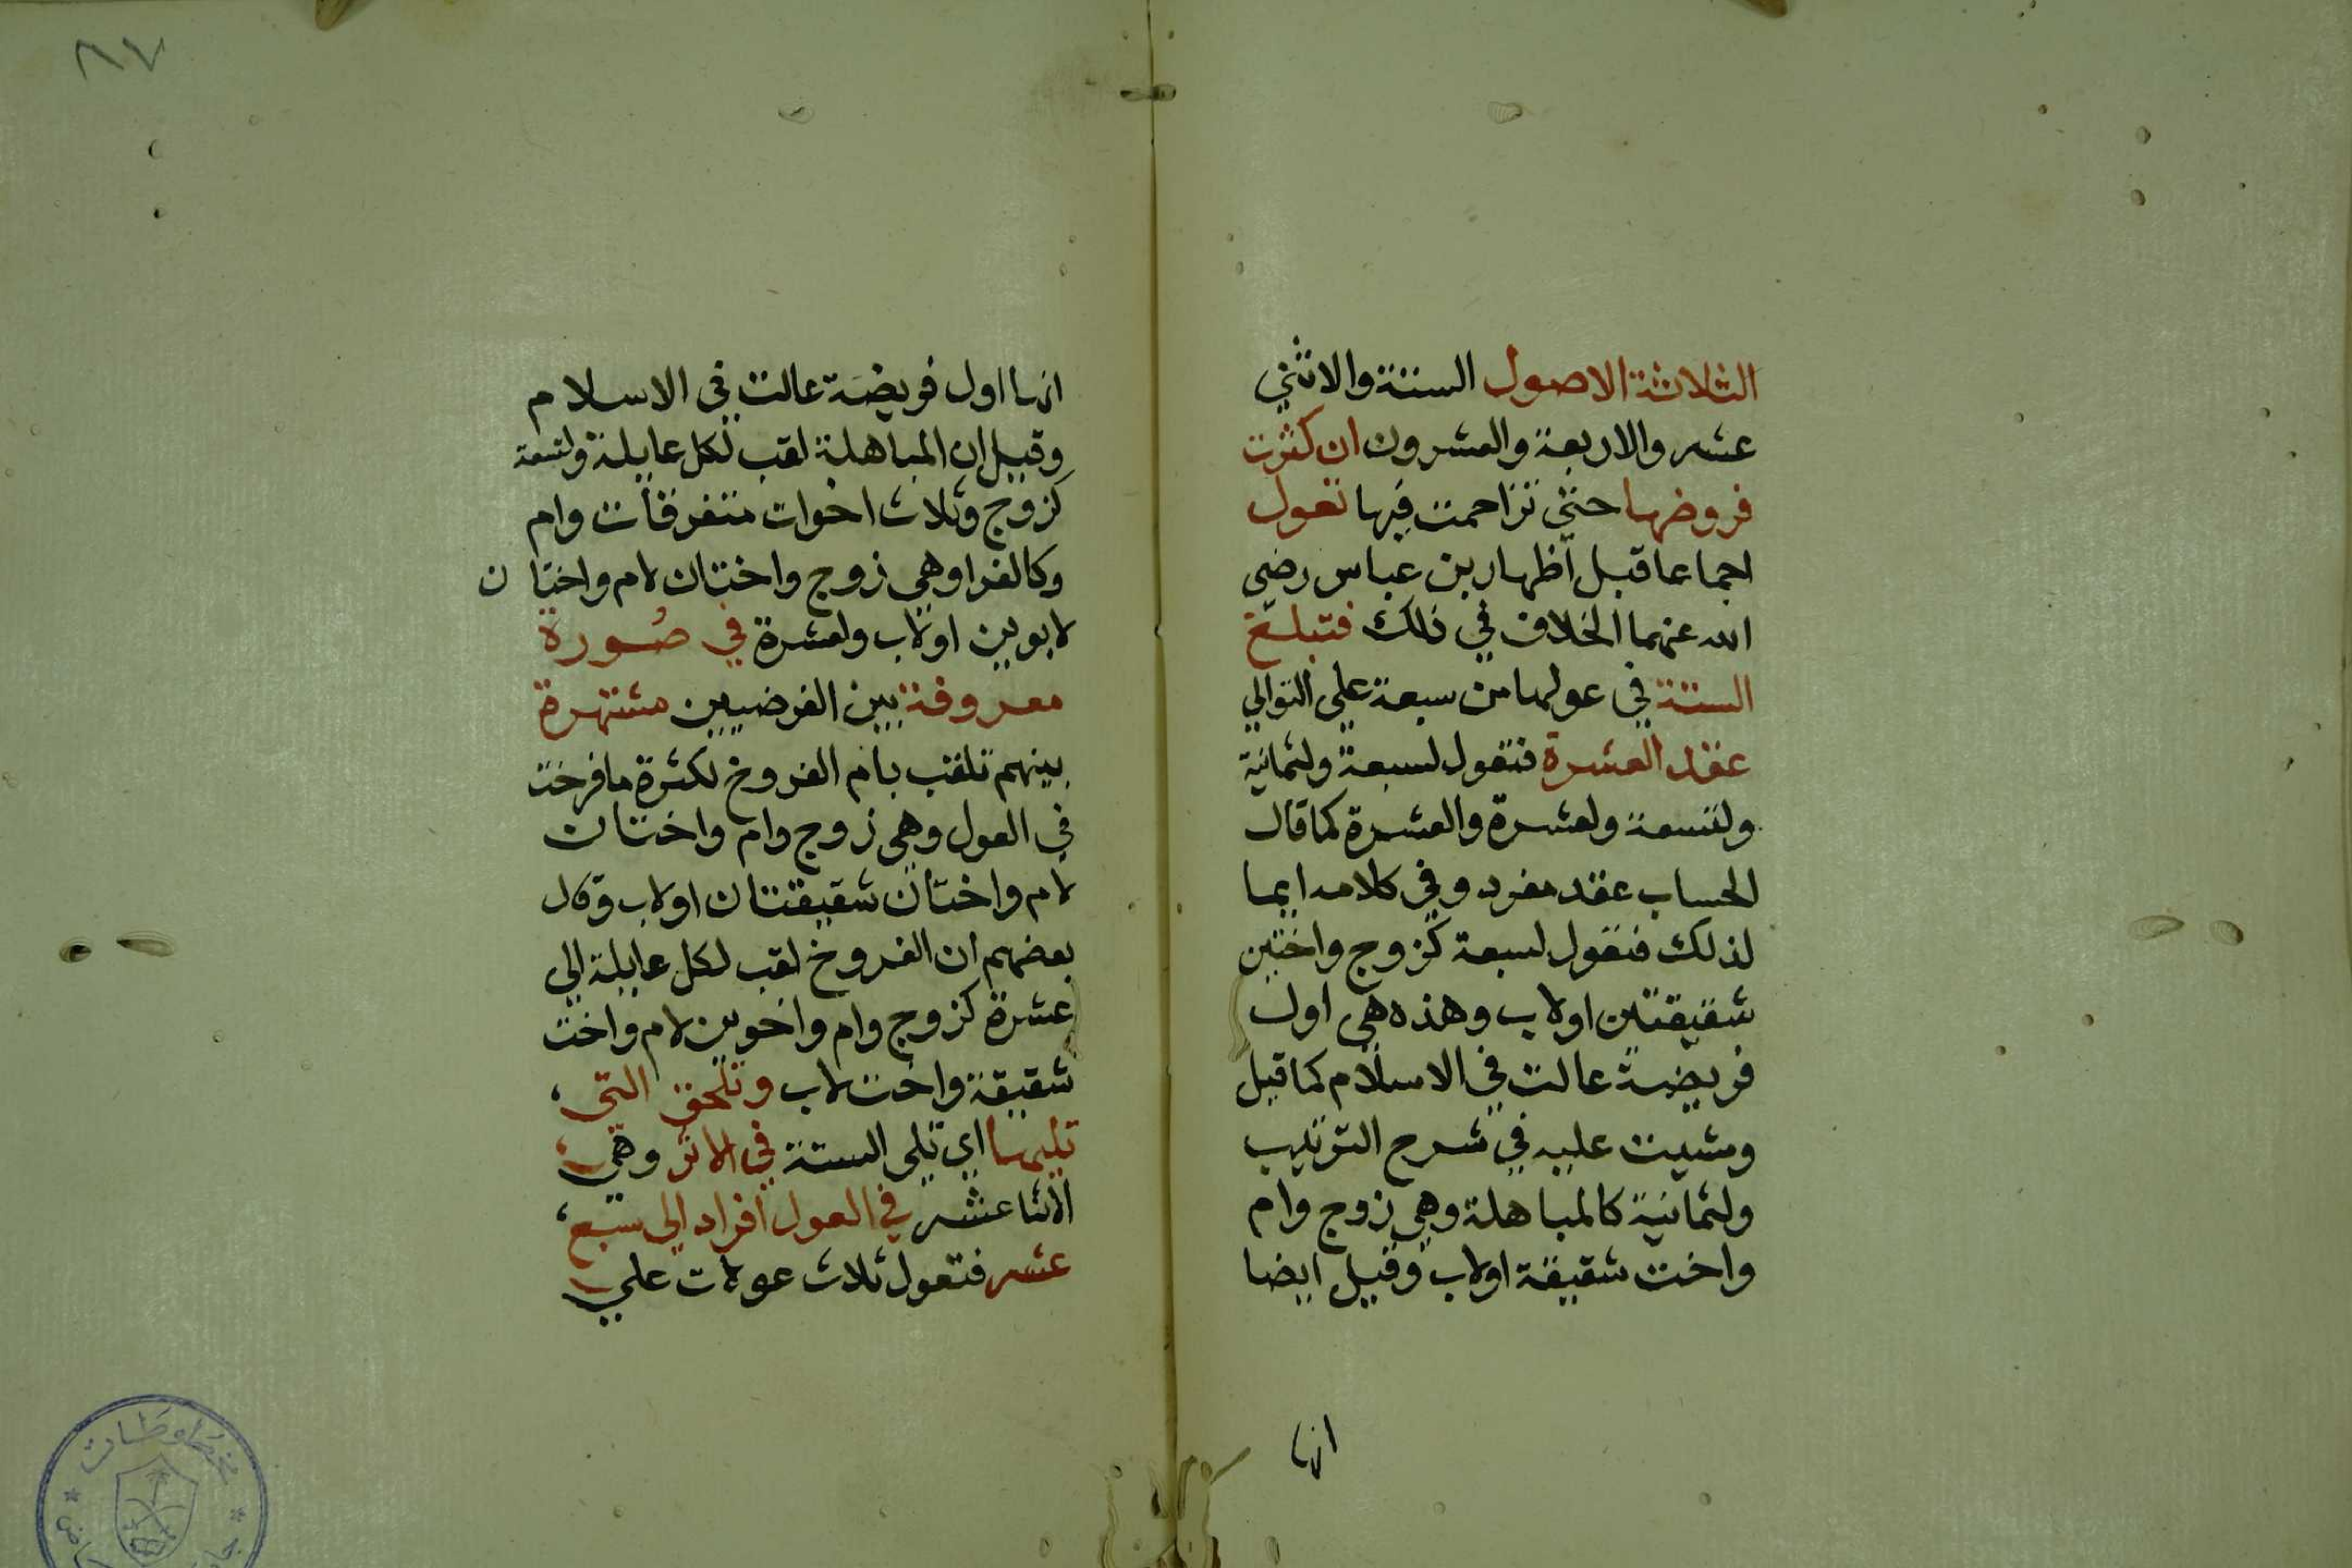 الثلاثة الاصول الستة والاثني
عشر والاربعة والعشرون ان كثرت
فروضها حتي تزاحمت فيها تعول
اجماعا قبل اظهار بن عباس رضي
الله عنهما الخلاف في ذلك فتبلغ
الستة في عولها من سبعة علي التوالي
عقد العشرة فتعول لسبعة ولثمانية
ولتسعة ولعشرة والعشرة كما قال
الحساب عقد مفرد وفي كلامه ايما
لذلك فتعول لسبعة كزوج واختين
شقيقتين او لاب وهذه هي اول
فريضة عالت في الاسلام كما قيل
ومشيت عليه في شرح الترتيب
ولثمانية كالمباهلة وهي زوج وام
واخت شقيقة او لاب وقيل ايضا
انها
٨٧
انها اول فريضة عالت في الاسلام
وقيل ان المباهلة لقب لكل عايلة ولتسعة
كزوج وثلاث اخوات متفرقات وام
وكالغرا وهي زوج واختان لام واختان
لابوين او لاب ولعشرة في صورة
معروفة بين الفرضيين مشتهرة
بينهم تلقب بام الفروخ لكثرة ما فرخت
في العول وهي زوج وام واختان
لام واختان شقيقتان او لاب وقال
بعضهم ان الفروخ لقب لكل عايلة الي
عشرة كزوج وام واخوين لام واخت
شقيقة واخت لاب وتلحق التي
تليها اي تلي الستة في الاثر وهي
الاثنا عشر في العول افراد الي سبع
عشر فتعول ثلاث عولات علي
مخطوطات